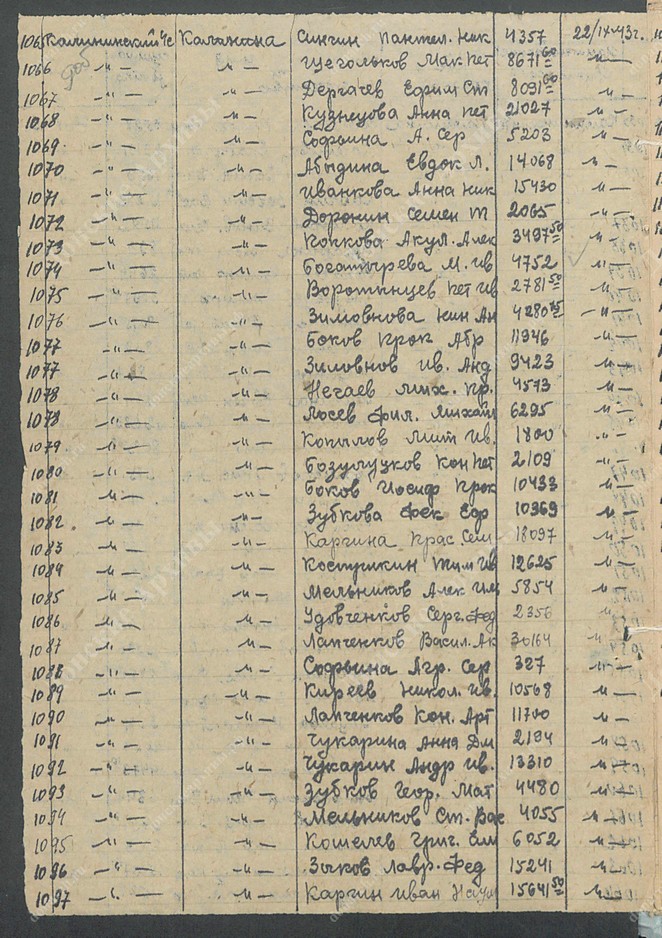 1065 Калининский с/с Калинина Сингин Пантел. Ник 4357 22/IX-43г.
1066 -"- -"- Щегольков Мак Пет 8671 60 -"-
1067 -"- -"- Дергачев Ефим Ст 8091 60 -"-
1068 -"- -"- Кузнецова Анна Пет 21027 -"-
1069 -"- -"- Софьина А. Сер 5203 -"-
1070 -"- -"- Абыдина Евдок Л. 14068 -"-
1071 -"- -"- Иванкова Анна Ник 15430 -"-
1072 -"- -"- Доронин Семен Т 2065 -"-
1073 -"- -"- Кочкова Акул. Алек 3497 50 -"-
1074 -"- -"- Богатырева М. Ив 4752 -"-
1075 -"- -"- Воротынцев Пет Ив 2781 50 -"-
1076 -"- -"- Зимовнова Нин Ан 4280 75 -"-
1077 -"- -"- Боков Прок Абр 11946 -"-
1077 -"- -"- Зимовнов Ив. Анд 9423 -"-
1078 -"- -"- Нечаев Мих. Пр. 4573 -"-
1078 -"- -"- Лосев Фил. Михайл 6295 -"-
1079 -"- -"- Копылов Мит Ив. 1800 -"-
1080 -"- -"- Бозулуков Кон Пет 2109 -"-
1081 -"- -"- Боков Иосиф Прок 10433 -"-
1082 -"- -"- Зубкова Фек Ефр 10369 -"-
1083 -"- -"- Каргина Прас. Сем 18097 -"-
1084 -"- -"- Костришкин Тим Ив 12625 -"-
1085 -"- -"- Мельников Алек Им 5854 -"-
1086 -"- -"- Удовченков Серг. Фед 2356 -"-
1087 -"- -"- Лапченков Васил. Ак 30164 -"-
1088 -"- -"- Софьина Агр. Сер 327 -"-
1089 -"- -"- Киреев Никол. Ив. 10568 -"-
1090 -"- -"- Лапченков Кон. Арт 11700 -"-
1091 -"- -"- Чукарина Анна Дм 2194 -"-
1092 -"- -"- Чукарин Андр Ив. 13310 -"-
1093 -"- -"- Зубков Геор. Мат 4480 -"-
1094 -"- -"- Мельников Ст. Вас 4055 -"-
1095 -"- -"- Кошелев Григ. Ем 6052 -"-
1096 -"- -"- Зыков Лавр. Фед 15241 -"-
1097 -"- -"- Каргин Иван Наум 15641 50 -"-